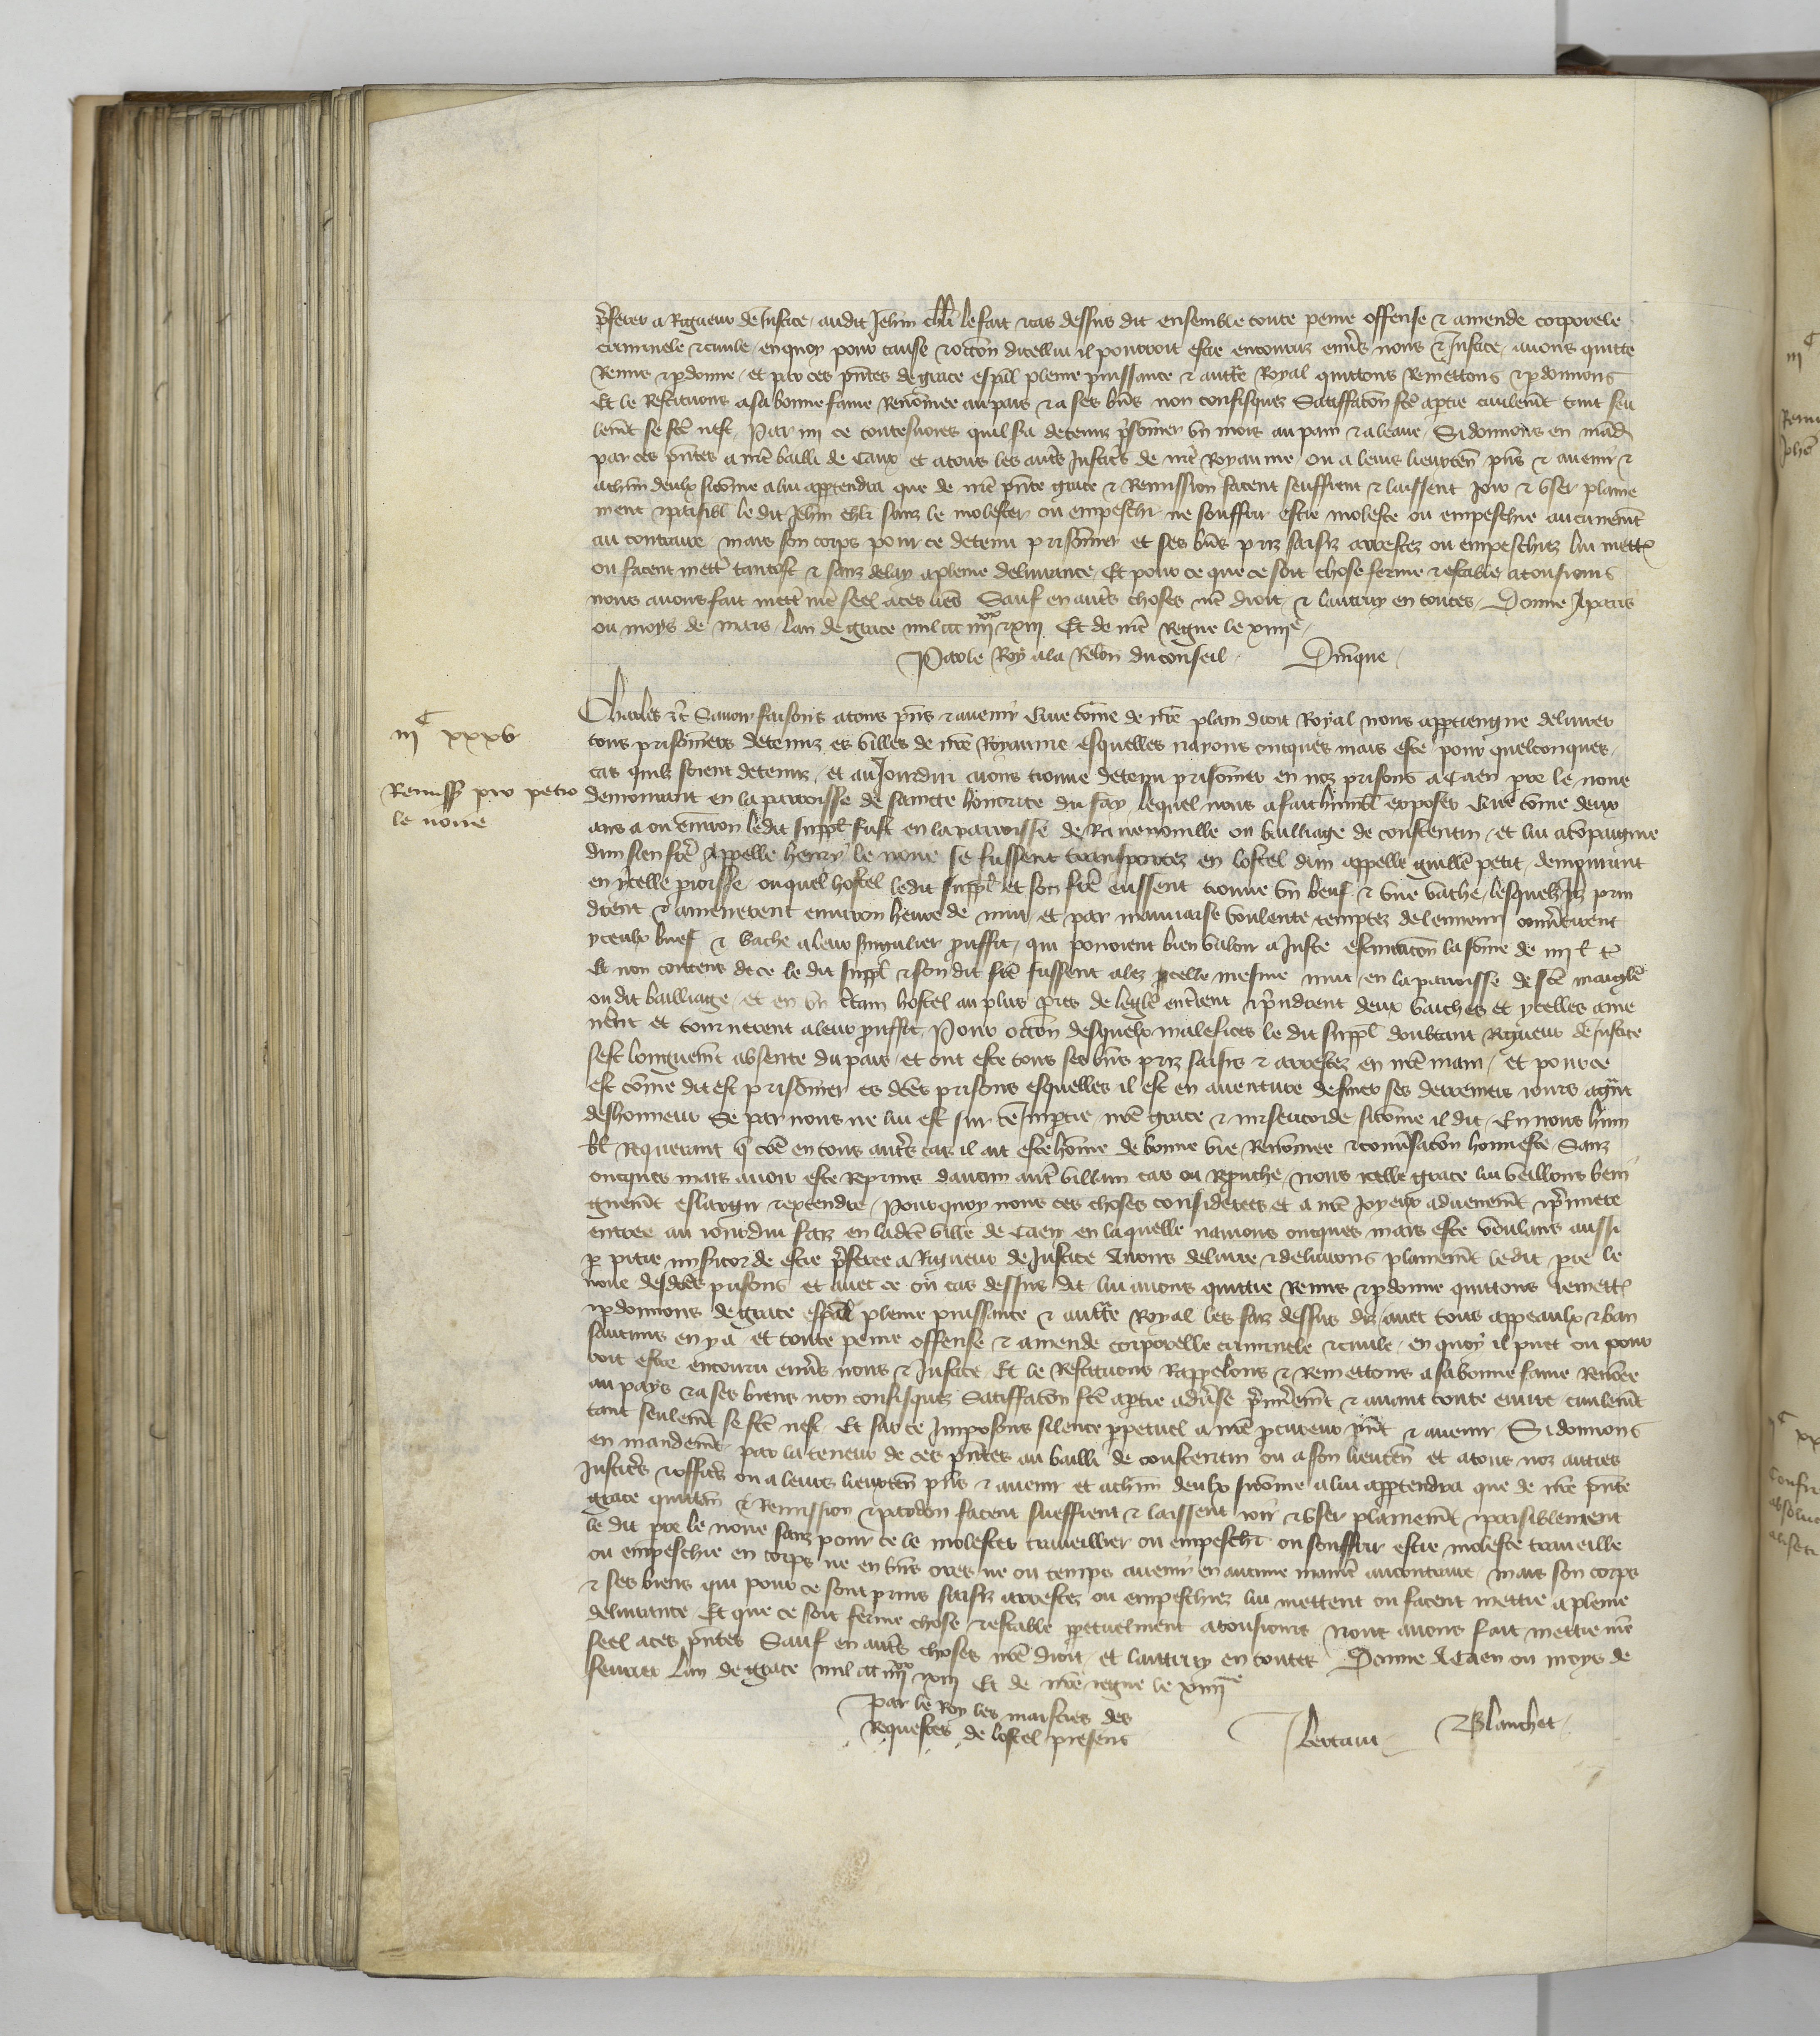 p̃ferer a Rigueur de Justice audit Jehan chlr le fait & cas dessus dit ensemble toute peine offense & amende corporele
criminele & civile en quoy pour cause & occõn dicellui il pourroit estre encouruz env̾s nous & Justice avons quitte
Remis & p̱donne et par ces p̃ntes de grace esp̃al pleine puissance & auct̃e Royal quittons Remettons & p̱donnons
Et le Restituons a sa bonne fame Renõmee au pais & a ses biẽs non confisquez Satisfacõn fc̃e a p̱tie civilem̃t tant seu
lem̃t se fc̃e nest Par my ce toutesvoies quil s̃a detenuz p̃sõnier un mois au pain & a leaue Si donnons en mãd
par ces p̃ntes a nr̃e bailli de Caux et a tous les aut̃s Justic̃s de nr̃e Royaume ou a leurs lieuxten̾ p̃ns & avenir &
a chũn deulx sicõme a lui app̱tendra que de nr̃e p̃nte grace & Remission facent seuffrent & laissent Joir & user plaine
ment & paisibl̃ le dit Jehan chlr sanz le molester ou empeschr̃ ne souffrir estre moleste ou empeschie aucunem̃t
au contraire mais son corps pour ce detenu prisõnier et ses biẽs priz saisiz arrestez ou empeschiez lui mett̾
ou facent mett̾ tantost & sanz delay a pleine delivrance Et pour ce que ce soit chose ferme & estable a tousiours
nous avons fait mett̃ nr̃e seel a ces lr̃es Sauf en aut̃s choses nr̃e droit & lautruy en toutes Donne A paris
ou moys de mars lan de grace mil ccc iiii xx & xiii Et de nr̃e Regne le xiiii e
Par le Roy a la Rel̃on du conseil Dñique
Charles &c̃ Savoir faisons a tous p̃ns & avenir Que cõme de nr̃e plain droit Royal nous app̱tiengne delivrer
tous prisõniers detenuz es villes de nr̃e Royaume esquelles nayons oncques mais este pour quelconques
cas quilz soient detenuz et au Jourdui avons trouve detenu prisõnier en noz prisons a Caen p̃re le noue
iii c xxxv
Remiss̾ pro petro
le noue
demourant en la parroisse de saincte honorine du fay lequel nous a fait humbl̃ exposer Que cõme deux
ans a ou environ ledit suppl̃ fust en la parroisse de Ravenouille ou bailliage de coustentin et lui acõpaigne
dun sien fr̃e Appelle henry le noue se fussent transportez en lostel dun appelle guill̃e petit demourant
en ycelle p̱roisse ouquel hostel ledit suppl̃ et son fr̃e eussent trouve un beuf & une vache lesquelz Ilz prin
drent & amenerent environ heure de nuit et par mauvaise voulente temptez de lennemi conv̾tirent
yceulx beuf & vache a leur singulier prouffit qui povoient bien valoir a Juste estimacõn la sõme de iiii l t̾
Et non contens de ce le dit suppl̃ & son dit fr̃e fussent alez ycelle mesme nuit en la parroisse de st̃e maiglr̃e
ou dit bailliage et en un c̾tain hostel au plus p̾s de legl̃e entrerent & p̃ndrent deux vaches et ycelles ame
nerẽt et tournerent a leur prouffit Pour occõn desquelx malefices le dit suppl̃ doubtant Rigueur de Justice
sest longuem̃t absente du pais et ont este touz ses biẽs priz saisis & arrestez en nr̃e main et pource
est cõme dit est prisõnier es dc̃es prisons esquelles il est en aventure de finer ses derreniers jours a grãt
deshonneur Se par nous ne lui est sur ce Imp̱tie nr̃e grace & misericorde sicõme il dit En nous hum
bl̃ Requerant q̃ cõe en tous aut̃s cas il ait este hõme de bonne vie Renõmee & conv̾sacõn honneste Sanz
oncques mais avoir este Reprins daucun aut̃ villain cas ou Reprouche nous icelle grace lui veillons beni
gnem̃t eslargir & extendre Pour quoy nous ces choses considerees et a nr̃e Joyeux advenem̃t & p̃miere
entree au jourdui faiz en ladc̃e ville de Caen en laquelle navions oncques mais este voulans aussi
p̱ pitie mis̾icorde estre p̃feree a Rigueur de Justice Avons delivre & delivrons plainem̃t le dit p̃re le
noue desdc̃es prisons et avec ce ou cas dessus dit lui avons quittie Remis & p̱donne quittons remett̾
& p̱donnons de grace esp̃al pleine puissance & auct̃e Royal les faiz dessus diz avec tous appeaulx & ban
saucuns en y a et toute peine offense & amende corporelle criminele & civile en quoy il puet ou pour
roit estre encouru env̾s nous & Justice Et le Restituons Rappelons & Remettons a sa bonne fame Renõee
au pays & a ses biens non confisquez Satisfacõn fc̃e a p̱tie adv̾se p̃mierem̃t & avant toute euvre civilem̃t
tant seulem̃t se fc̃e nest Et sur ce Imposons silence p̱petuel a nr̃e p̱cureur p̃nt & avenir Si donnons
en mandem̃t par la teneur de ces p̃ntes au bailli de coustentin ou a son lieuten̾ et a tous noz autres
Justic̃s & offic̃s ou a leurs lieuxten̾ p̃ns & avenir et a chũn deulx sicõme a lui app̱tendra que de nr̃e p̃nte
grace quittan̾ & Remission & pardon facent sueffrent & laissent joir & user plainem̃t & paisiblement
le dit p̃re le noue sanz pour ce le molester traveillier ou empeschr̃ ou souffrir estre moleste traveille
ou empeschie en corps ne en biẽs ores ne ou temps avenir en aucune manie̾ au contraire mais son corps
& ses biens qui pour ce sont prins saisiz arrestez ou empeschiez lui mettent ou facent mettre a pleine
delivrance Et que ce soit ferme chose & estable p̱petuelment a tousiours nous avons fait mettre nr̃e
seel a ces p̃ntes Sauf en aut̃s choses nr̃e droit et lautruy en toutes Donne A Caen ou moys de
fevrier lan de grace mil ccc iiii xx xiii Et de nr̃e regne le xiiii e
Par le Roy les maistres des
Requestes de lostel present Bertaut & Blanchet